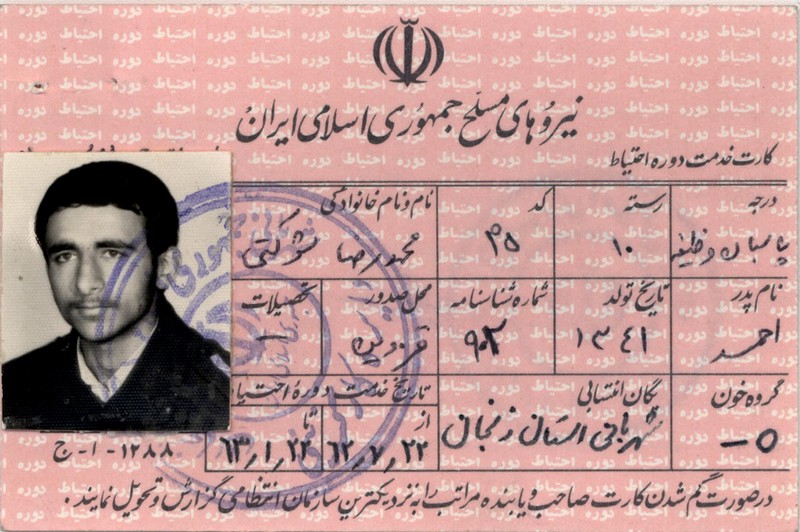 نیروهای مسلح جمهوری اسلامی ایران
کارت خدمت دوره احتیاط
درجه رسته کد نام و نام خانوادگی
پاسبان وظیفه ۱۰ ۳۵ محمدرضا شوکتی
نام پدر تاریخ تولد شماره شناسنامه محل صدور تحصیلات
احمد ۱۳۴۱ ۹۰۲
گروه خون یگان انتسابی تاریخ خدمت دوره احتیاط
O– شهربانی استان زنجان از ۶۲,۷,۲۲ تا ۶۳,۱,۲۲
۱۲۸۸-۱-ج
درصورت گم شدن کارت صاحب و یابنده مراتب را به نزدیکترین سازمان انتظامی گزارش و تحویل نمایند.